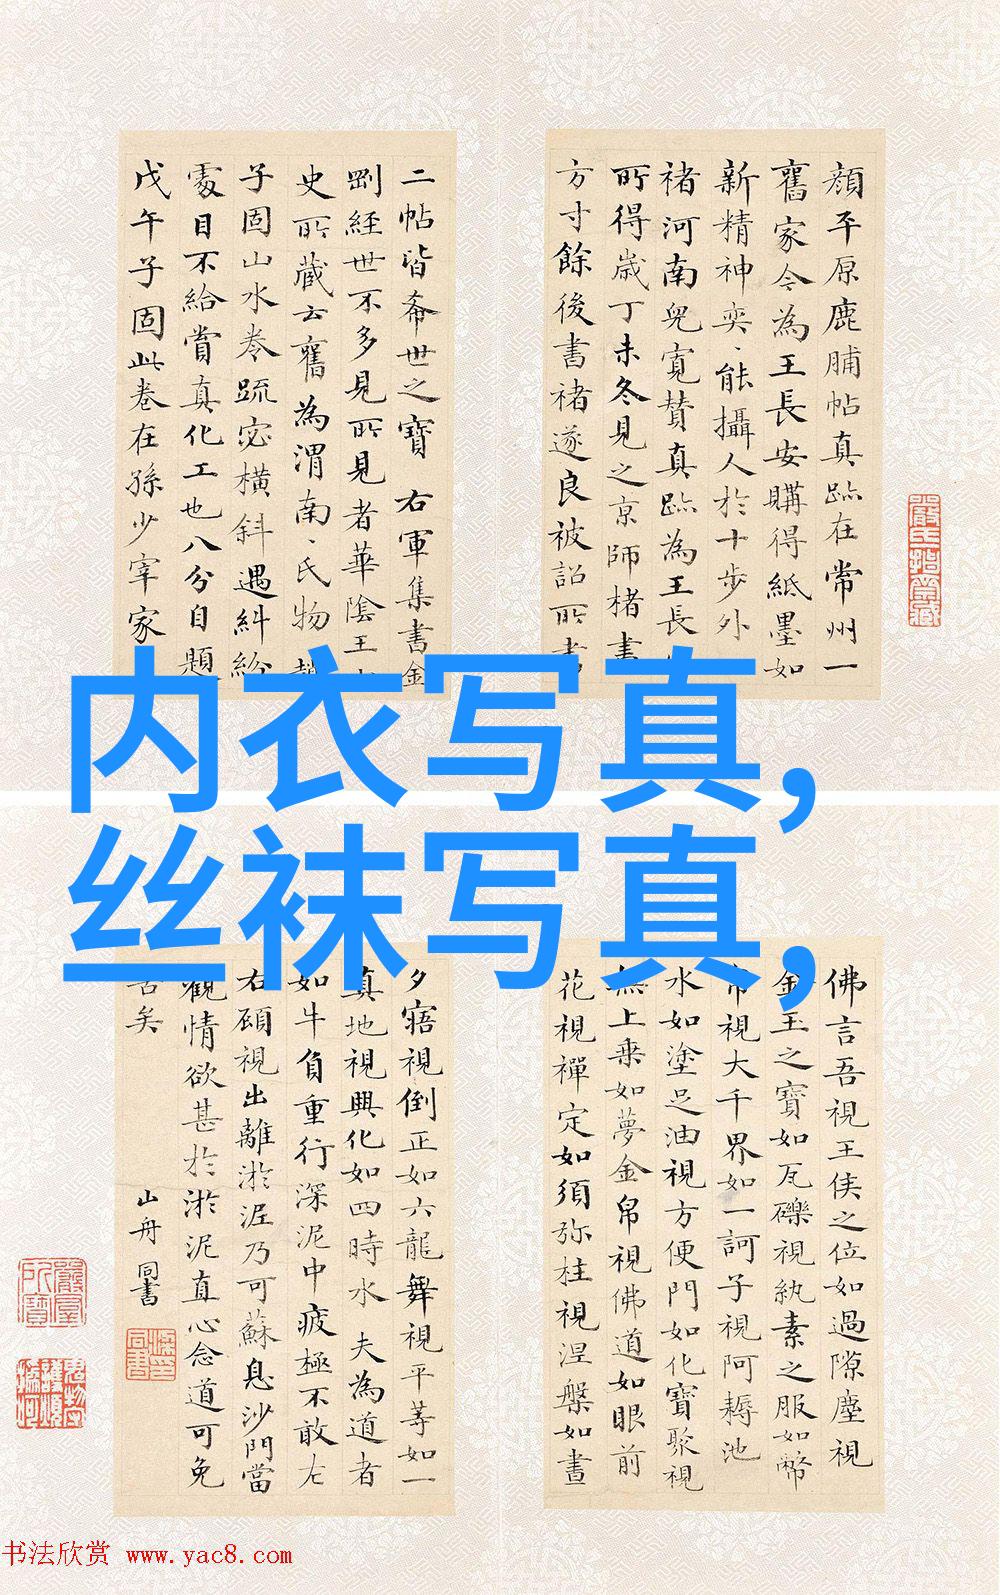 顔平原鹿脯帖真跡在常州一
舊家今為王長安購得紙墨如
新精神奕、能攝人於十步外
褚河南兒寬賛真跡為王長
所得歲丁未冬見之京師楮書
方寸餘後書褚遂良被詔所書
二帖皆希世之寶 右軍集書金
剛經世不多見所見者華陰王
史所藏云舊為渭南、氏物趙
子固山水卷疏宓橫斜遇糾紛
處目不給賞真化工也八分自題
戊午子固此卷在孫少宰家
内衣写真,
丝袜写真,
佛言吾視王侯之位如過隙塵視
金玉之寶如瓦礫視紈素之服如幣
帛視大千界如一訶子視阿耨池
水如塗足油視方便門如化寶聚視
無上乗如夢金帛視佛道如眼前
花視禪定如須弥柱視涅槃如晝
夕寤視倒正如六龍舞視平等如一
真地視興化如四時水 夫為道者
如牛負重行深泥中疲極不敢左
右顧視出離淤泥乃可蘇息沙門當
觀情欲甚於淤泥直心念道可免
苦矣 山舟 同書
书法欣赏 www.yac8.com